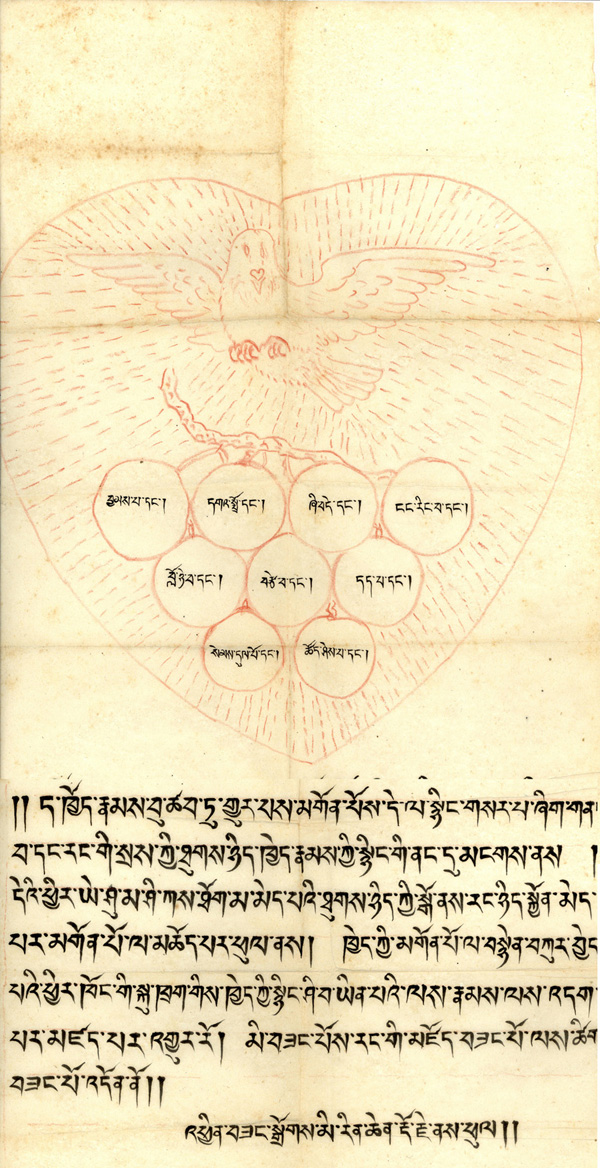 བྱམས་པ་དང་།
དགའ་སྤྲོ་དང་།
ཞི་བདེ་དང་།
ངང་རིང་བ་དང་།
བློ་ཉེ་བ་དང་།
བརྩེ་བ་དང་།
དད་པ་དང་།
སེམས་དུལ་པོ་དང་།
ཚོད་ཤེས་པ་དང་།
།། ད་ཁྱོད་རྣམས་བུ་ཚབ་ཏུ་གྱུར་པས་མགོན་པོས་དེ་ལ་སྙིང་གསར་པ་ཞིག་གན
བ་དང་རང་གི་སྲས་ཀྱི་ཐུགས་ཉིད་ཁྱེད་རྣམས་ཀྱི་སྙིང་གི་ནང་དུ་མངགས་ནས །
དེའི་ཕྱིར་ཡེ་ཤུ་མ་ཤི་ཀས་ཐོག་མ་མེད་པའི་ཐུགས་ཉིད་ཀྱི་སྒོ་ནས་རང་ཉིད་སྐྱོན་མེད་
པར་མགོན་པོ་ལ་མཆོད་པར་ཕུལ་ནས། ཁྱེད་ཀྱི་མགོན་པོ་ལ་བསྙེན་བཀུར་བྱེད
པའི་ཕྱིར་ཁོང་གི་སྐུ་ཁྲག་གིས་ཁྱེད་ཀྱི་སྙིང་ཤི་བ་ཡིན་པའི་ལས་རྣམས་ལས་འདག་
པར་མཛད་པར་འགྱུར་རོ། མི་བཟང་པོས་རང་གི་མཛོད་བཟང་པོ་ལས་ཚིག
བཟང་པོ་འདོན་ནོ།།
འཕྲིན་བཟང་སྒྲོགས་མི་རིན་ཆེན་རྡོ་རྗེ་ནས་ཕུལ།།